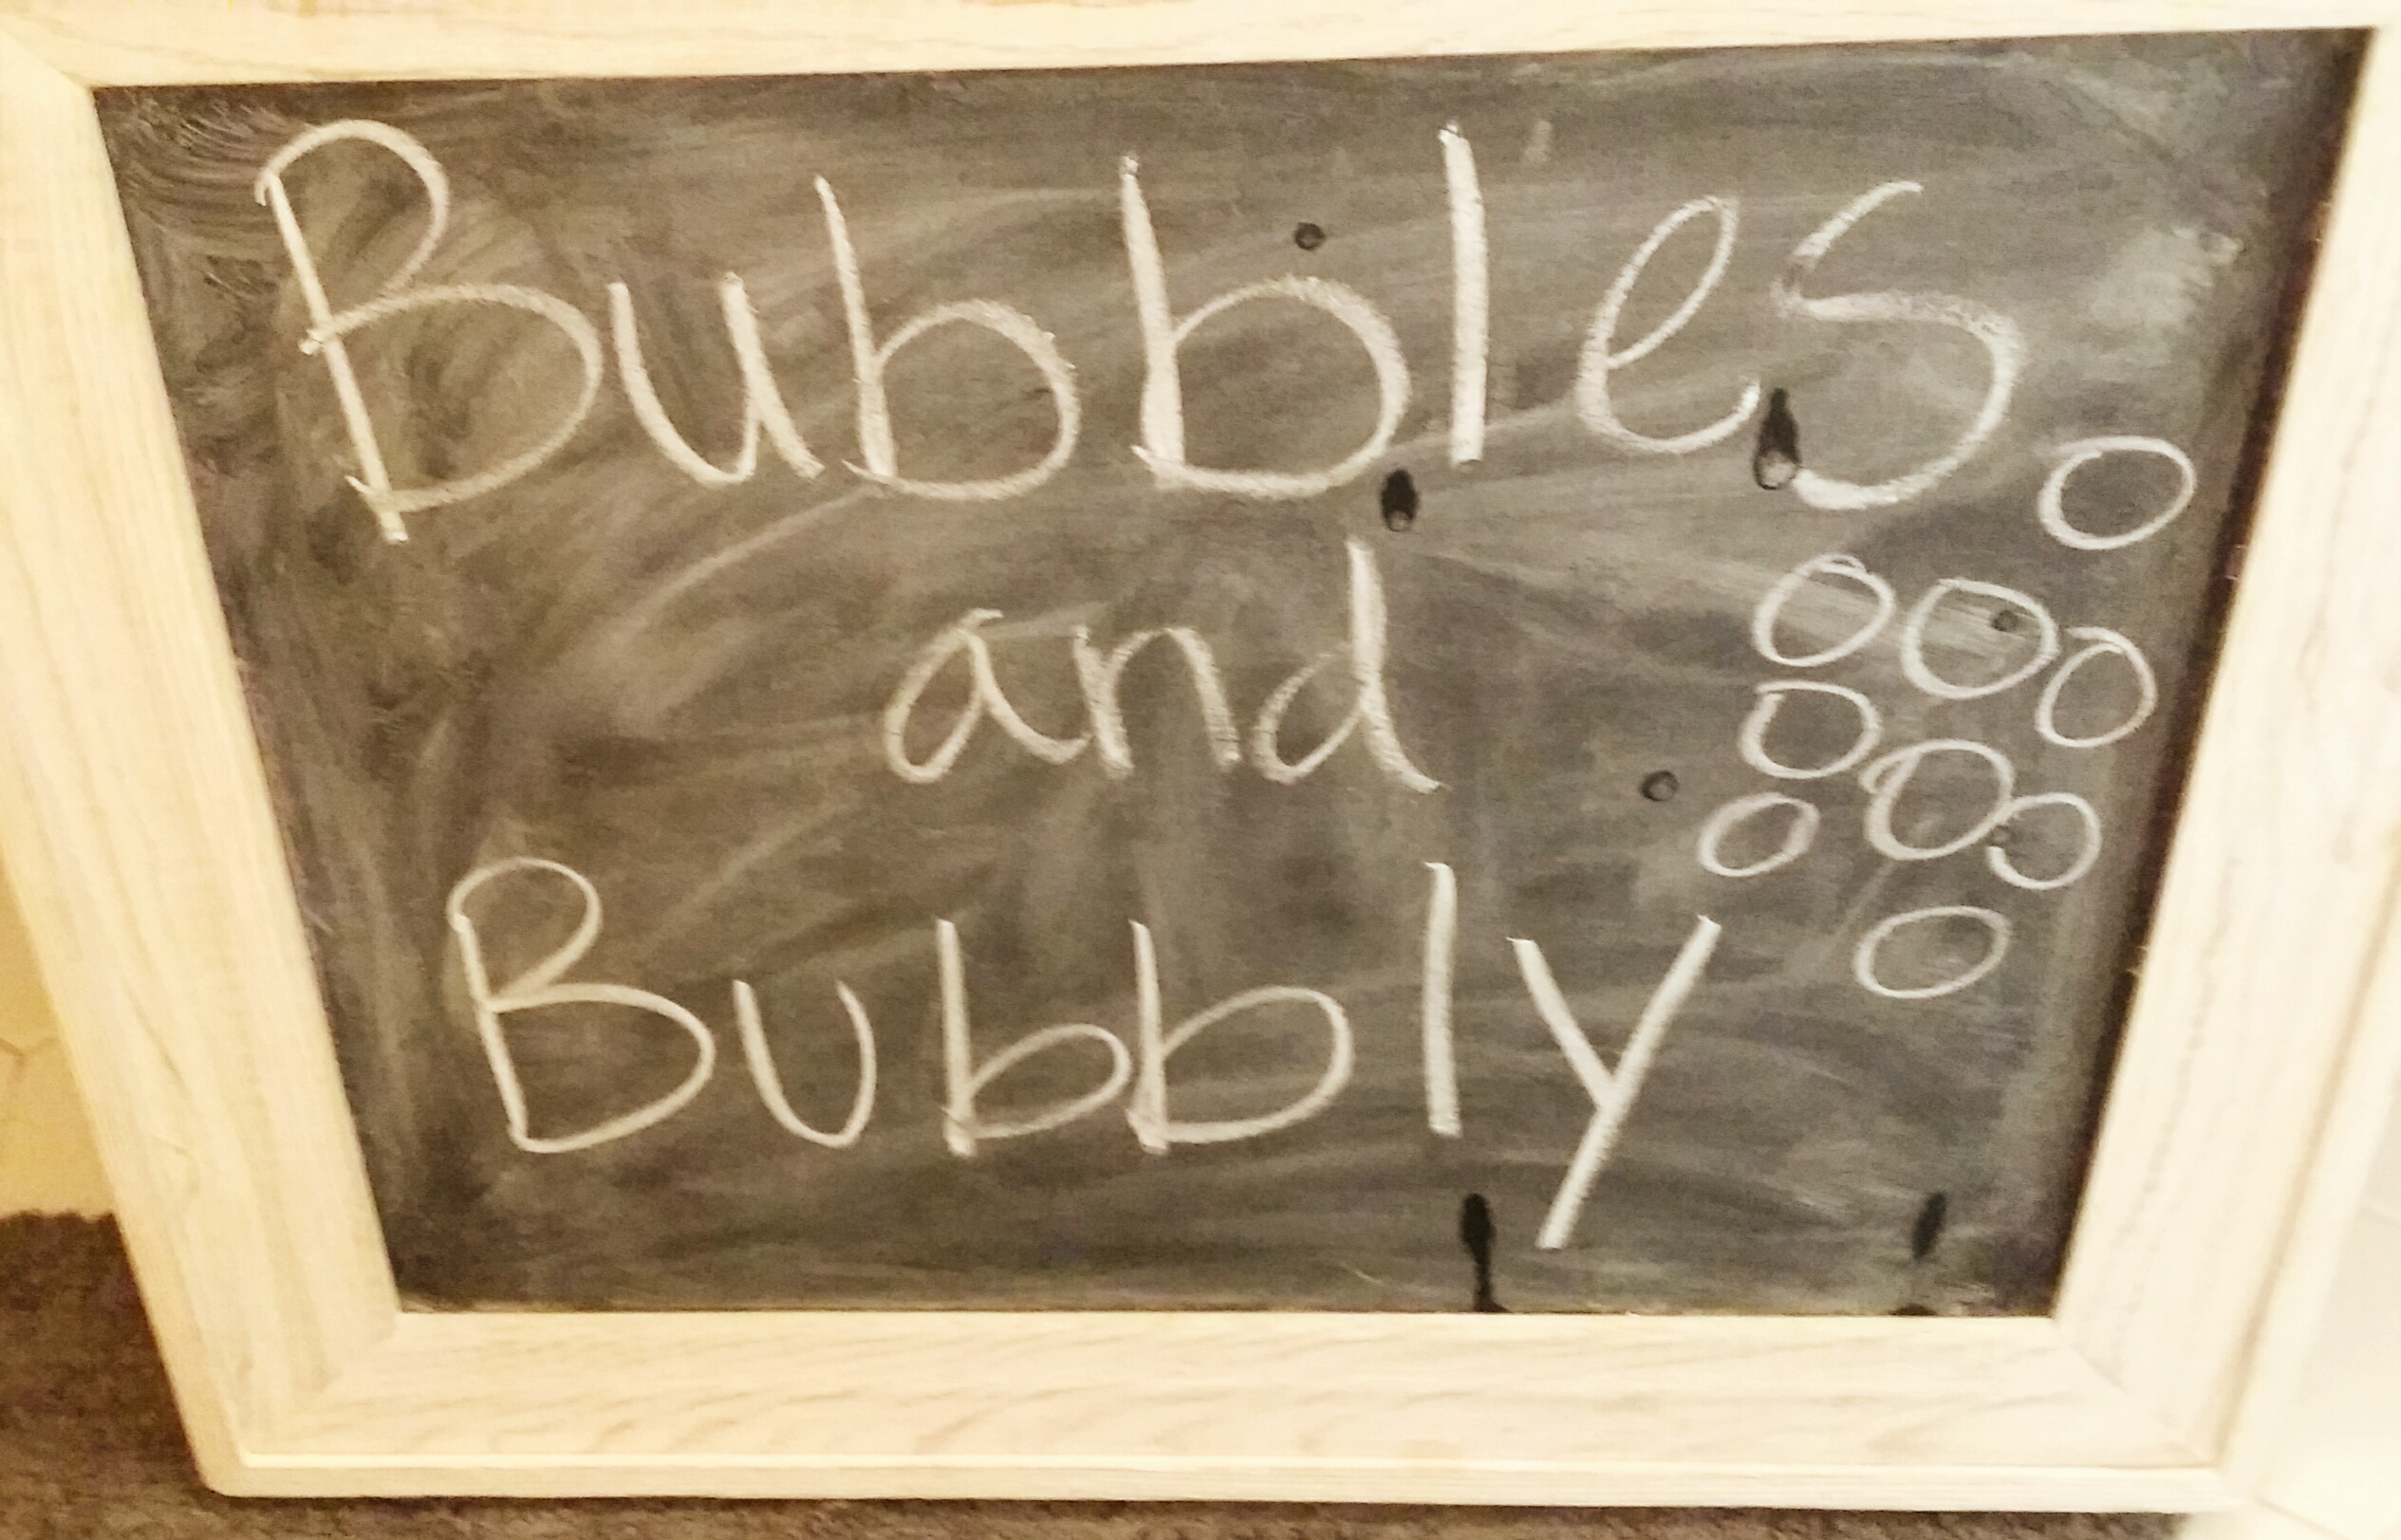 Bubbles
and
Bubbly